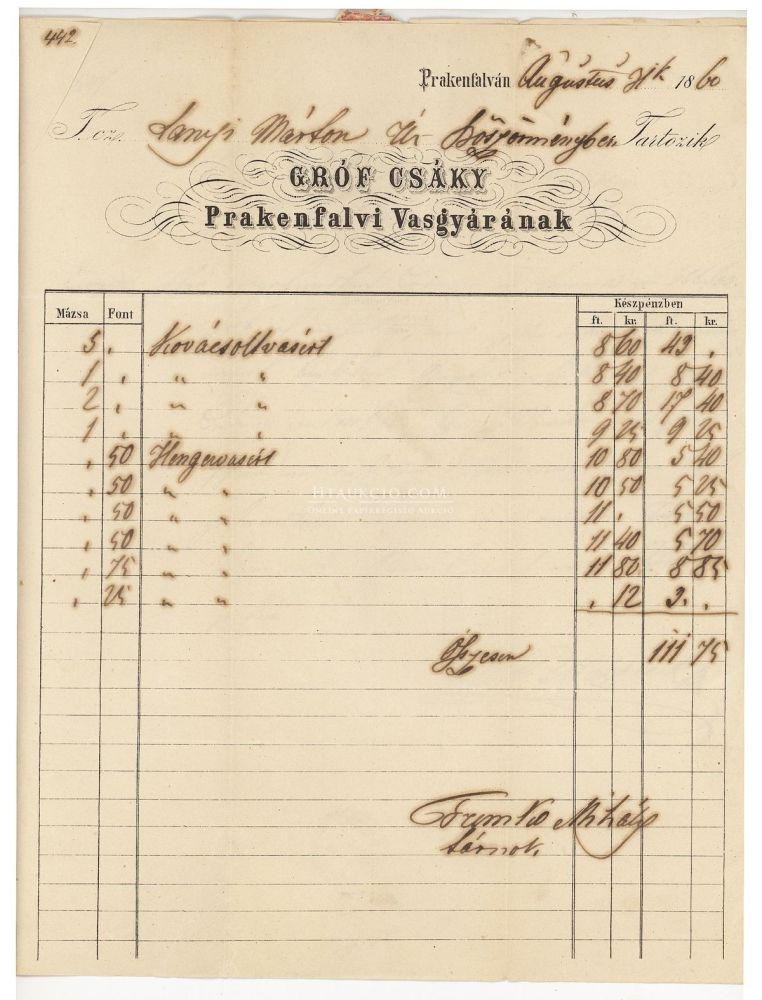 442
Prakenfalván Augustus 1860
T. cz. Márton Úr Böszörményben Tartozik
GRÓF CSÁKY
Prakenfalvi Vasgyárának
Mázsa Font Készpénzben
ft. kr. ft. kr.
5 . Kovácsoltvasért 8 60 43 .
1 . " " 8 40 8 40
2 . " " 8 70 17 40
1 . " " 9 25 9 25
. 50 Hengervasért 10 80 5 40
. 50 " " 10 50 5 25
HTAUKCIO.COM
ONLINE PAPÍRRÉGISÉG AUKCIÓ
. 50 " " 11 . 5 50
. 50 " " 11 40 5 70
. 75 " " 11 80 8 85
. 25 " " . 12 3 .
Öszvesen 111 75
Mihály